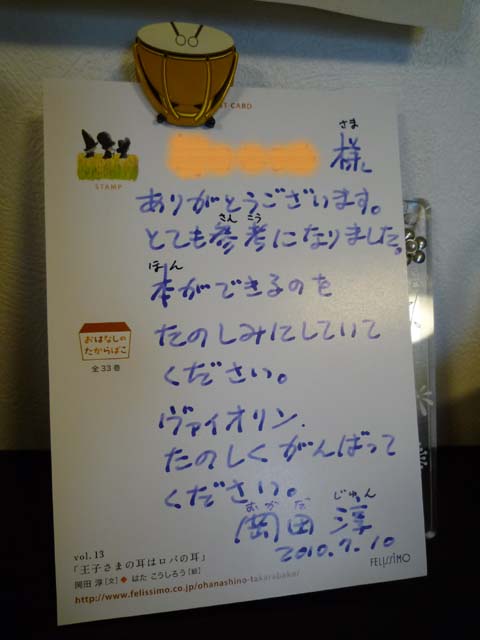 ST CARD
STAMP
さま
様
ありがとうございます。
さん こう
とても参考になりました。
ほん
本ができるのを
たのしみにしていて
ください。
おはなしの
たからばこ
全33巻
ヴァイオリン、
たのしくがんばって
ください。
おかだ じゅん
岡田 淳
2010.7.10
vol. 13
「王子さまの耳はロバの耳」
岡田 淳[文]◆はた こうしろう[絵]
http://www.felissimo.co.jp/ohanashino-takarabako/
FELISSIMO